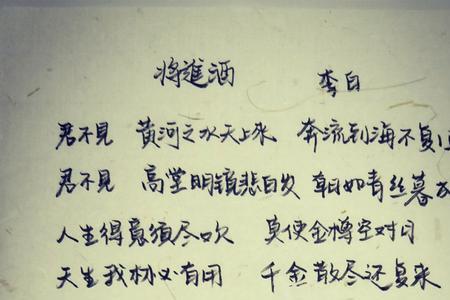 将進酒 李白
君不見 黄河之水天上来 奔流到海不复
君不見 高堂明镜悲白发 朝如青丝暮
人生得意须尽欢 莫使金樽空对月
天生我材必有用 千金散尽还复来